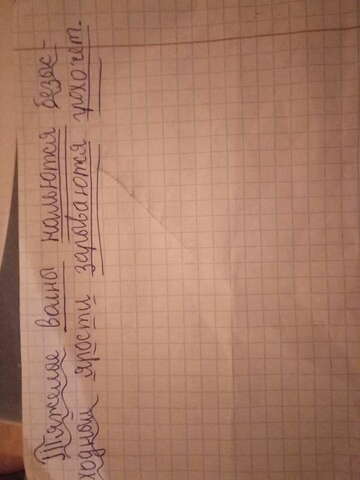 Тяжелое валны нальются безас-
ходной ярости зарываются грохочет.